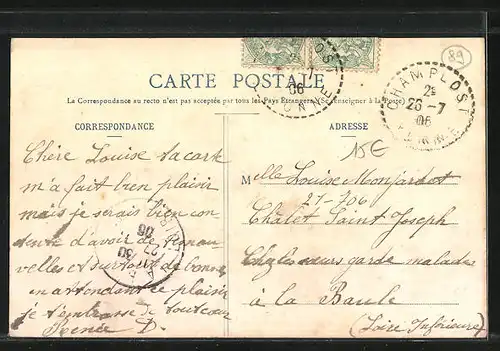 CARTE POSTALE
La Correspondance au recto n'est pas acceptée par tous les Pays Étrangers (Se renseigner à la Poste)
CORRESPONDANCE
ADRESSE
Chère Louise ta carte
m'a fait bien plaisir
mais je serais bien con
tente d'avoir de tes nou
velles et surtout de bonnes
en attendant le plaisir
je t'embrasse de tout cœur
Renée D.
15E
Melle Louise Monjardet
27-706
Chalet Saint Joseph
Chez les sœurs garde malades
à la Baule
(Loire Inférieure)
CHAMPLOST
2E
26-7
06
YONNE
06
YONNE
89